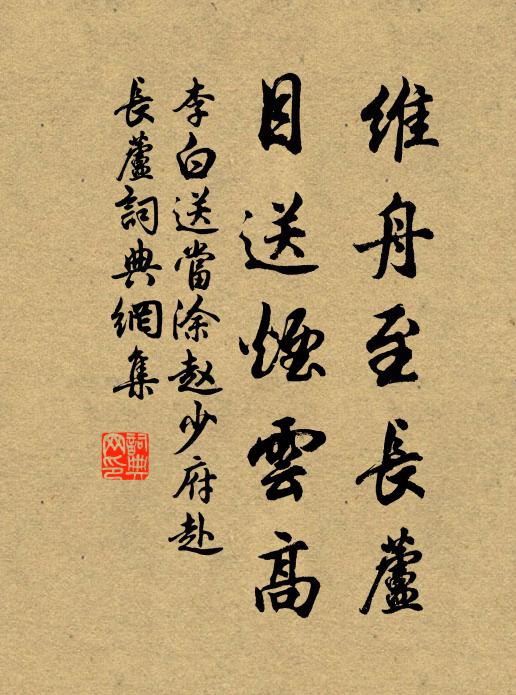 維舟至長蘆
目送煙雲高
李白送當涂趙少府赴
長蘆詞典網集
詞典
网印